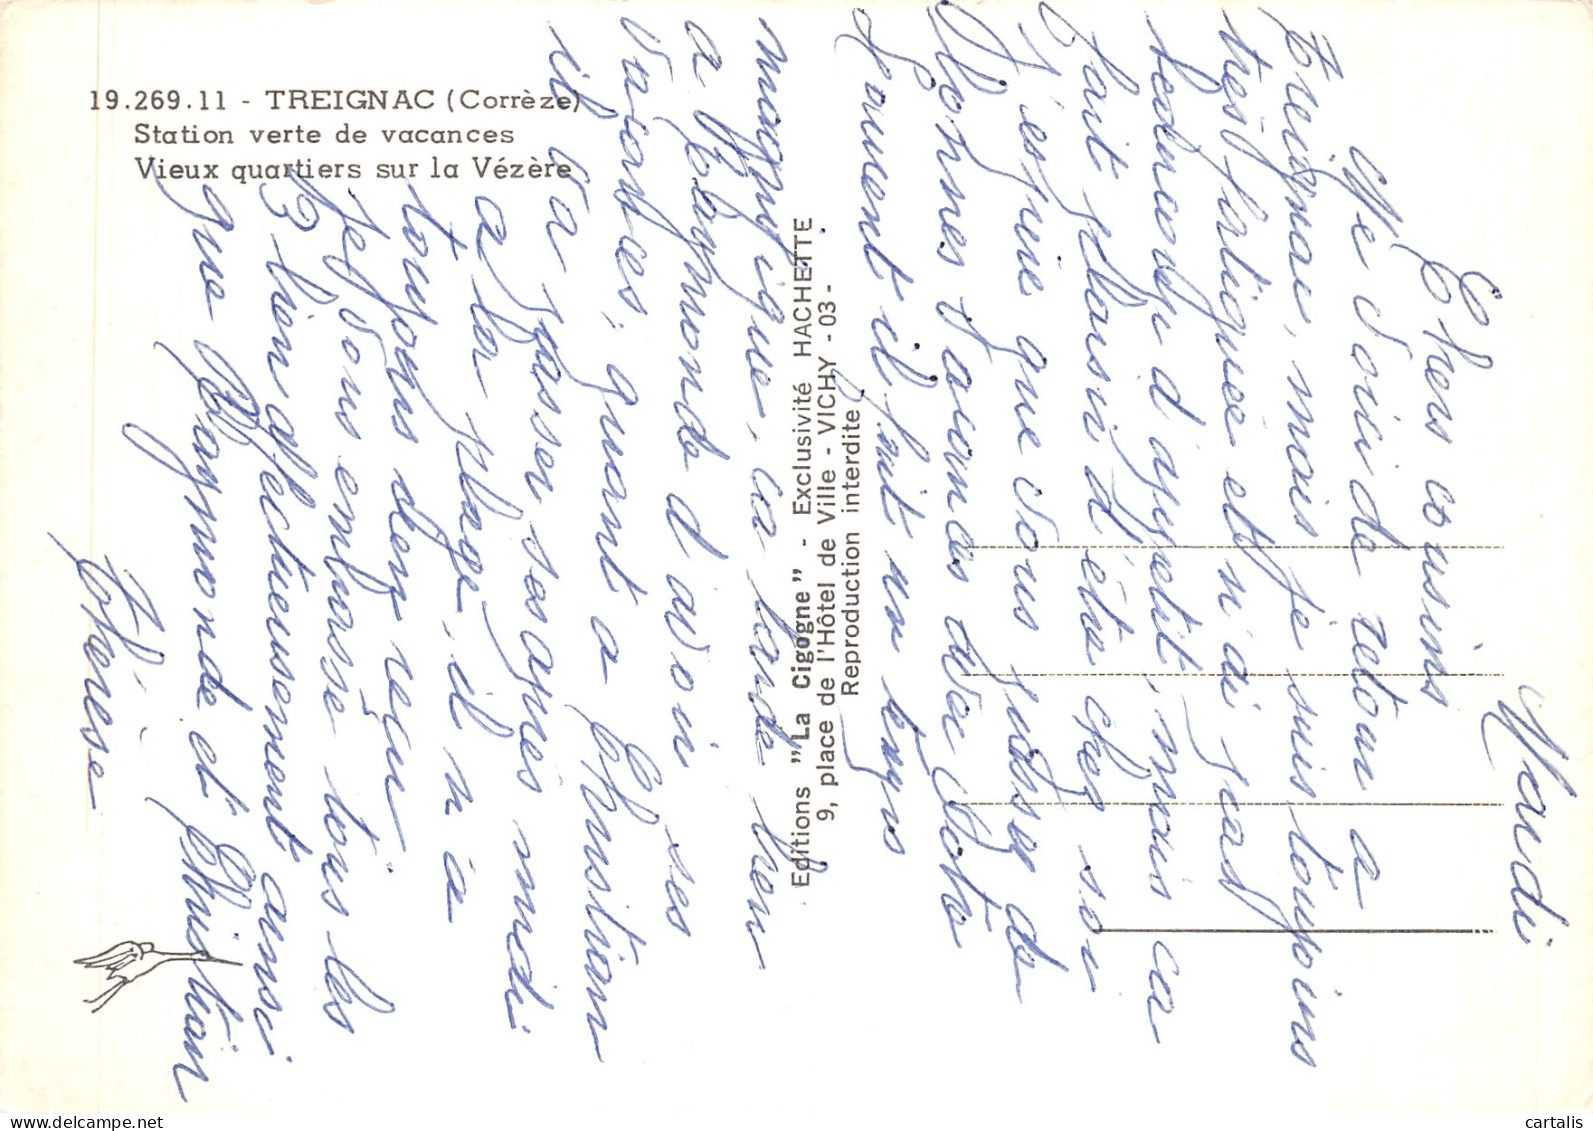 19.269.11 - TREIGNAC (Corrèze)
Station verte de vacances
Vieux quartiers sur la Vézère
Editions "La Cigogne" - Exclusivité HACHETTE
9, place de l'Hôtel de Ville - VICHY - 03 -
Reproduction interdite
Mardi
Chers cousins
Me voici de retour a
Treignac, mais je suis toujours
très fatiguée et n'ai pas
beaucoup d'appetit, mais ca
fait plaisir d'être chez soi
J'espère que vous passez de
bonnes vacances avec
souvent il fait un temps
magnifique, ca tarde bien
a Raymonde d'avoir ses
vacances, quant a Christian
il va passer ses après midi
a la plage, il n'a
toujours rien reçu
Je vous embrasse tous les
3 bien affectueusement ainsi
que Raymonde et Christian
Thérèse
cartalis